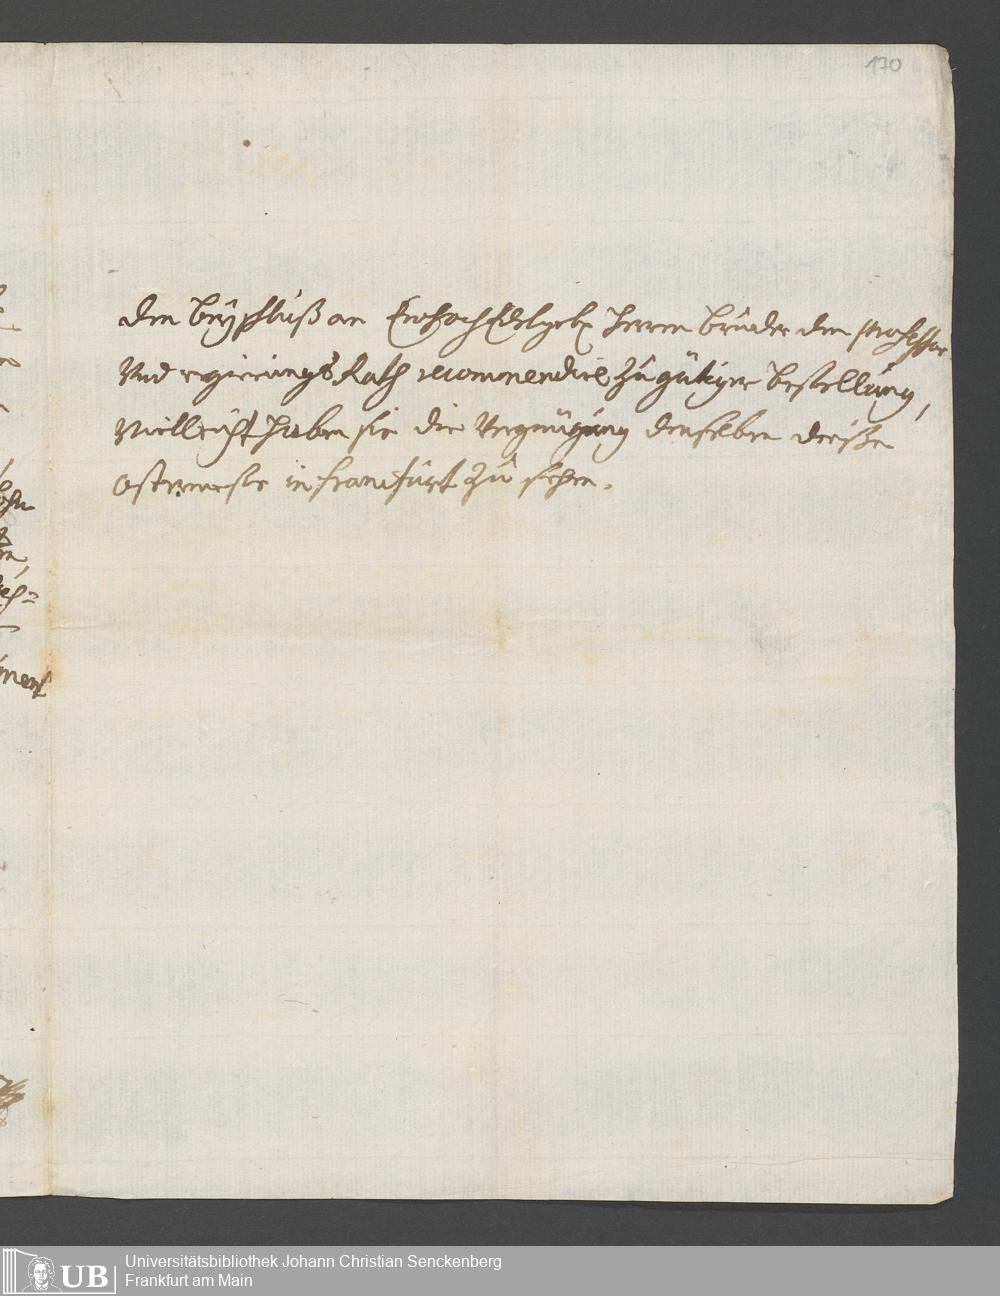 170
den beyschluß an Ewhochedelgeb. herren bruder den professor
Und regierungs Rath recommendire zu gütiger bestellung,
Vielleicht haben sie die Vergnügung denselben dieße
ostermeße in franckfurt zu sehen.
ment
UB
Universitätsbibliothek Johann Christian Senckenberg
Frankfurt am Main